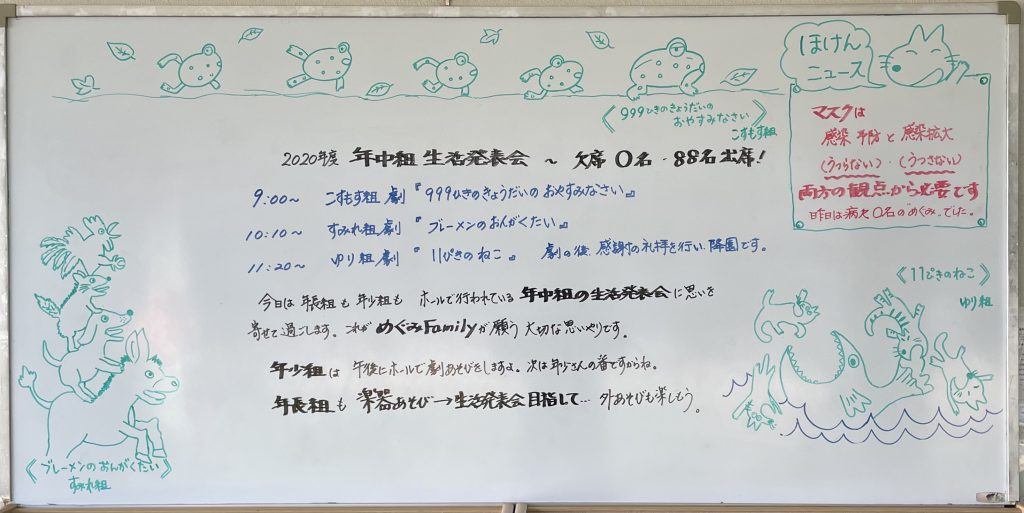 ほけん
ニュース
《999ひきのきょうだいの
おやすみなさい》
こすもす組
マスクは
感染予防と感染拡大
(うつらない)・(うつさない)
両方の観点から必要です
昨日は病欠0名の"めぐみ"でした。
2020年度 年中組 生活発表会 ~ 欠席0名・88名出席!
9:00~ こすもす組 劇『999ひきのきょうだいのおやすみなさい』
10:10~ すみれ組 劇『ブレーメンのおんがくたい』
11:20~ ゆり組 劇『11ぴきのねこ』 劇の後、感謝の礼拝を行い、降園です。
今日は 年長組も 年少組も ホールで行われている 年中組の生活発表会に思いを
寄せて過ごします。これが めぐみFamilyが願う 大切な思いやりです。
年少組は 午後にホールで劇あそびをしますよ。次は年少さんの番ですからね。
年長組も 楽器あそび→生活発表会目指して… 外あそびも楽しもう。
《11ぴきのねこ》
ゆり組
《ブレーメンのおんがくたい》
すみれ組